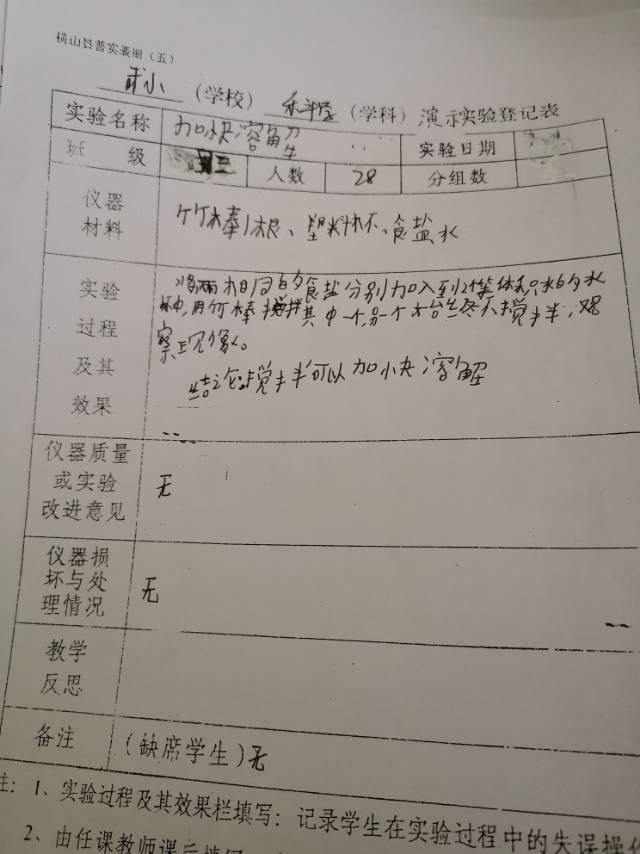 横山县普实表册（五）
（学校） 科学 （学科） 演示实验登记表
实验名称 加快溶解 实验日期
班 级 三 人数 28 分组数
仪器
材料
竹棒1根、塑料杯、食盐、水
实验
过程
及其
效果
将两相同的食盐分别加入到2个等体积水的水
杯中,用竹棒搅拌其中一个,另一个不搅拌,观
察现像。
结论:搅拌可以加快溶解
仪器质量
或实验
改进意见
无
仪器损
坏与处
理情况
无
教学
反思
备注
（缺席学生）无
注：1、实验过程及其效果栏填写：记录学生在实验过程中的失误操作
2、由任课教师课后填写